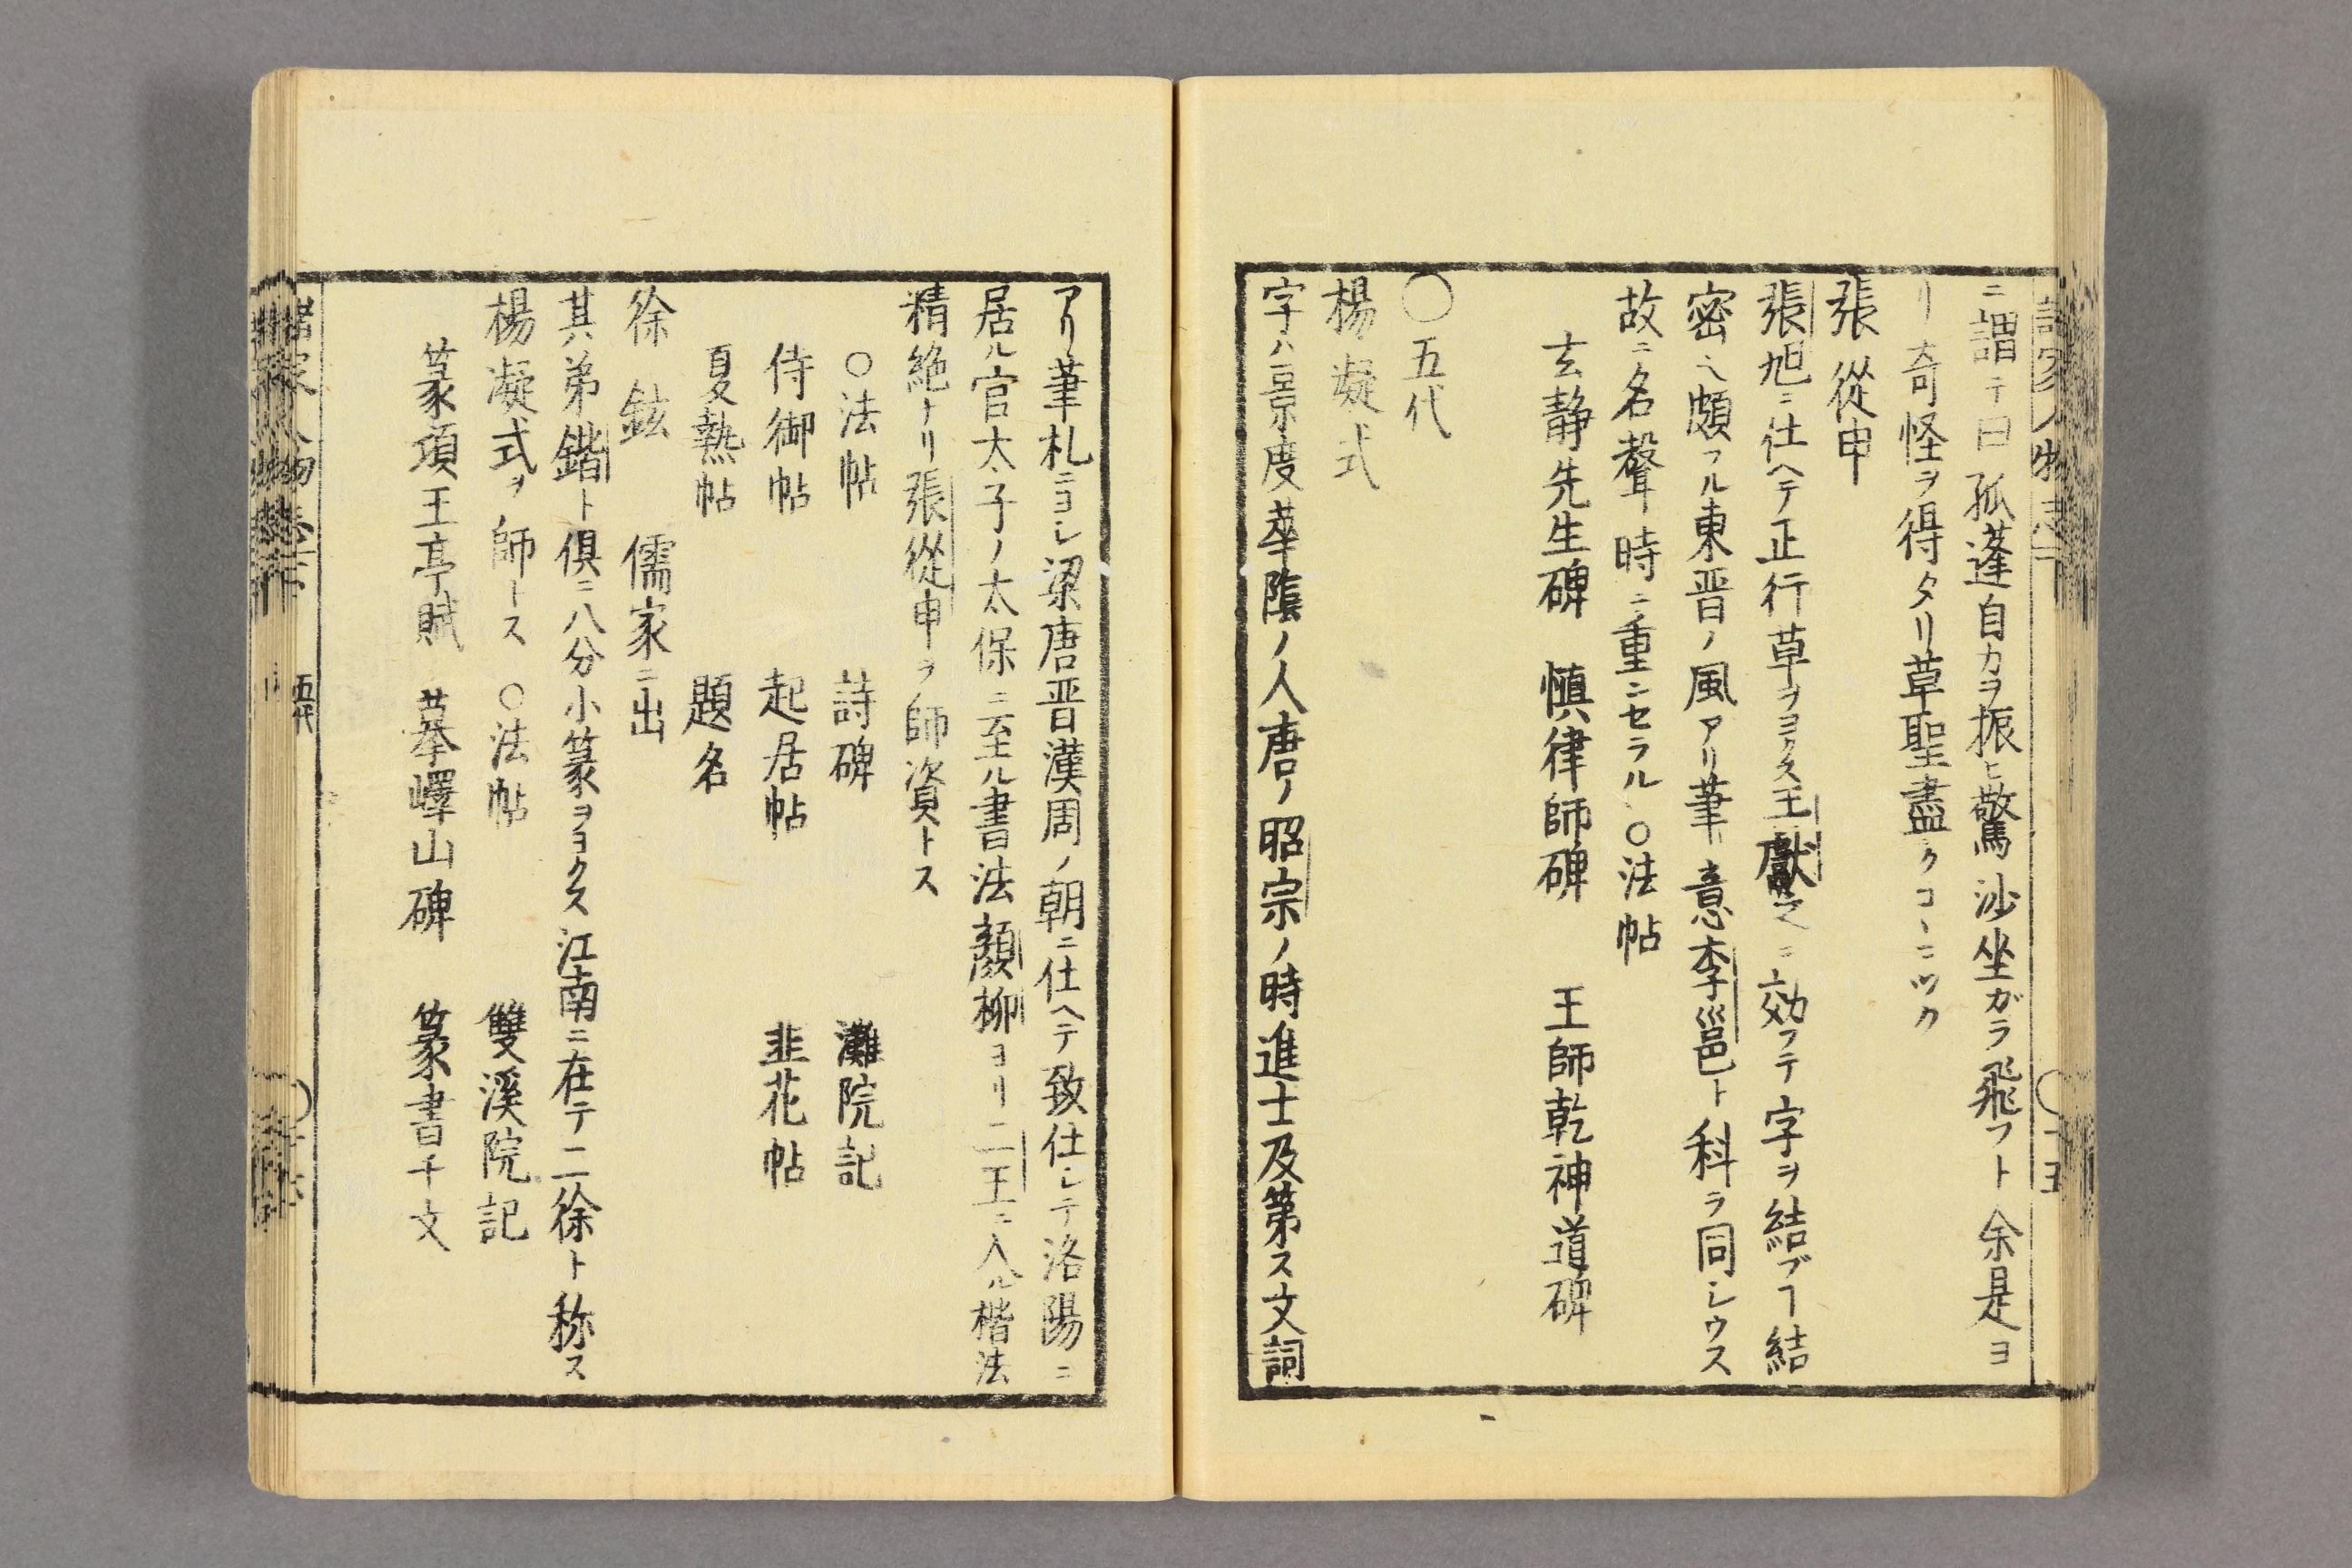 ニ謂テ曰孤蓬自カラ振ヒ驚沙坐ガラ飛フト余是ヨ
リ奇怪ヲ得タリ草聖盡クコヽニツク
張從申
張旭ニ仕ヘテ正行草ヲヨクス王獻之ニ効フテ字ヲ結ブヿ結
密ヘ頗フル東晋ノ風アリ筆意李邕ト科ラ同シウス
故ニ名聲時ニ重ンセラル○法帖
玄静先生碑 愼律師碑 王師乾神道碑
○五代
楊凝式
字ハ景度華隂ノ人唐ノ昭宗ノ時進士及第ス文詞
アリ筆札ニヨシ梁唐晋漢周ノ朝ニ仕ヘテ致仕シテ洛陽ニ
居ル官太子ノ太保ニ至ル書法顏柳ヨリ二王ニ入ル楷法
精絶ナリ張從申ヲ師資トス
○法帖 詩碑 灘院記
侍御帖 起居帖 韭花帖
夏熱帖 題名
徐鉉 儒家ニ出
其弟鍇ト倶ニ八分小篆ヲヨクス江南ニ在テ二徐ト称ス
楊凝式ヲ師トス ○法帖 雙溪院記
篆項王亭賦 摹嶧山碑 篆書千文
諸家人物志下 五代